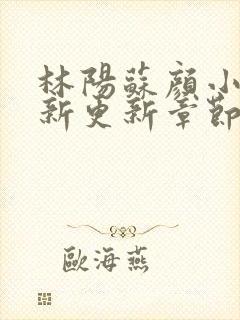 林陽蘇顔小
新更新章節
歐海燕